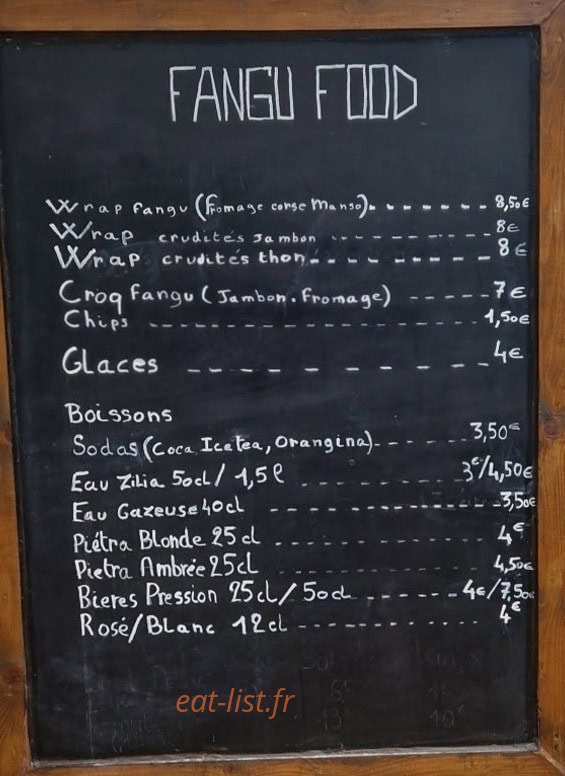 FANGU FOOD
Wrap fangu (fromage corse Manso) - - - - - - - 8,50€
Wrap crudités Jambon - - - - - - - - - - 8€
Wrap crudités thon - - - - - - - - 8€
Croq fangu (Jambon. fromage) - - - - - 7€
Chips - - - - - - - - - - - - - - - - - - - - 1,50€
Glaces - - - - - - - - - - 4€
Boissons
Sodas (Coca, Icetea, Orangina) - - - - - - 3,50€
Eau Zilia 50cl / 1,5l - - - - - - - - - - 3€/4,50€
Eau Gazeuse 40cl - - - - - - - - - - - - - - 3,50€
Piétra Blonde 25 cl - - - - - - - - - - - - - 4€
Pietra Ambrée 25cl - - - - - - - - - - - - - 4,50€
Bieres Pression 25cl / 50cl - - - - - - - 4€/7,50€
Rosé/Blanc 12cl - - - - - - - - - - - 4€
eat-list.fr